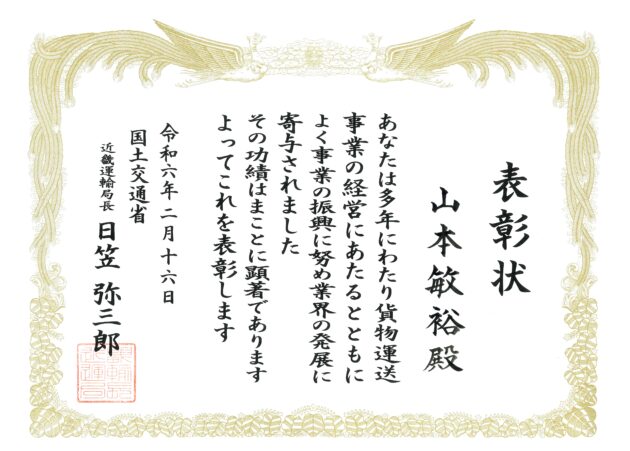 表彰状
山本敏裕殿
あなたは多年にわたり貨物運送
事業の経営にあたるとともに
よく事業の振興に努め業界の発展に
寄与されました
その功績はまことに顕著であります
よってこれを表彰します
令和六年二月十六日
国土交通省
近畿運輸局長 日笠 弥三郎